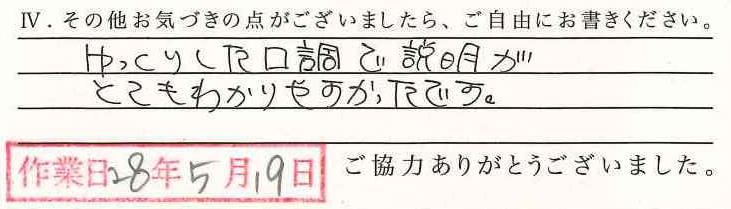 Ⅳ．その他お気づきの点がございましたら、ご自由にお書きください。
ゆっくりした口調で説明が
とてもわかりやすかったです。
作業日28年5月19日
ご協力ありがとうございました。